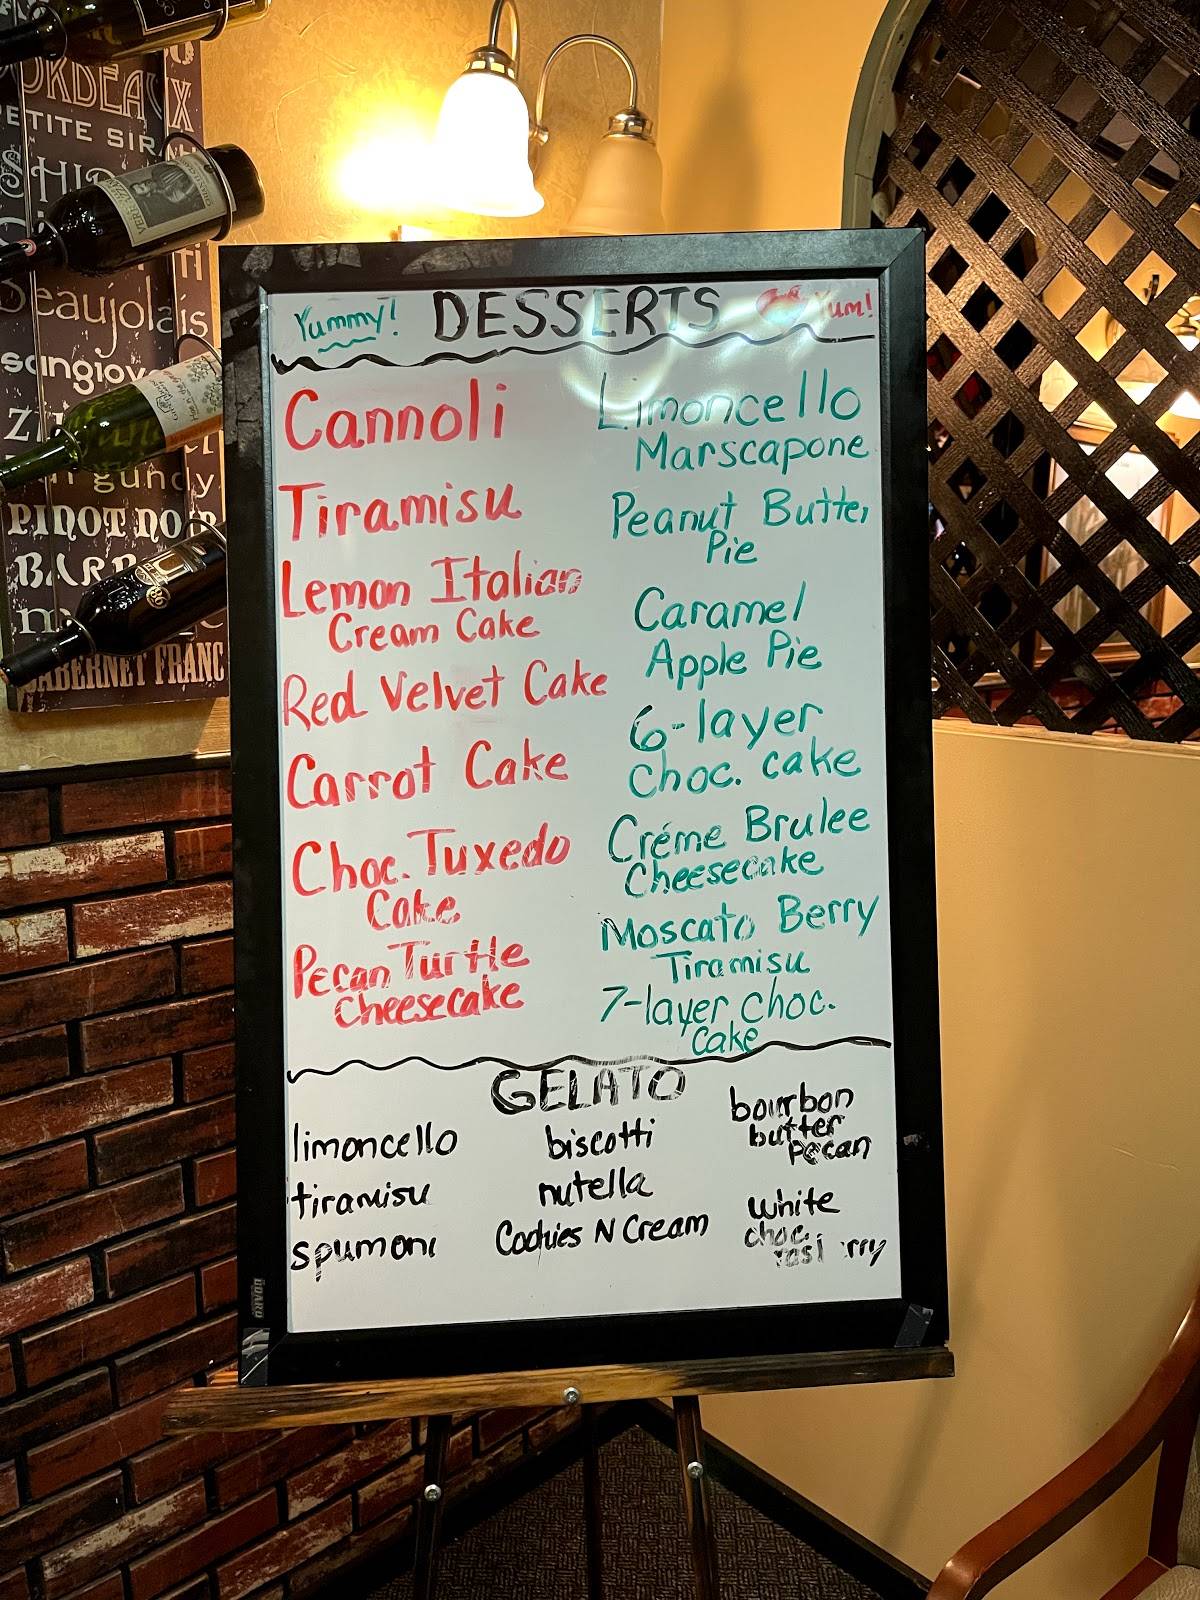 BORDEAUX
PETITE SIR
Beaujolais
sangiov
PINOT NO
CABERNET FRANC
Yummy! DESSERTS Yum!
Cannoli
Tiramisu
Lemon Italian
Cream Cake
Red Velvet Cake
Carrot Cake
Choc. Tuxedo
Cake
Pecan Turtle
Cheesecake
Limoncello
Marscapone
Peanut Butter
Pie
Caramel
Apple Pie
6-layer
choc. cake
Créme Brulee
Cheesecake
Moscato Berry
Tiramisu
7-layer choc.
cake
GELATO
limoncello
tiramisu
spumoni
biscotti
nutella
Cookies N Cream
bourbon
butter
pecan
white
choc.